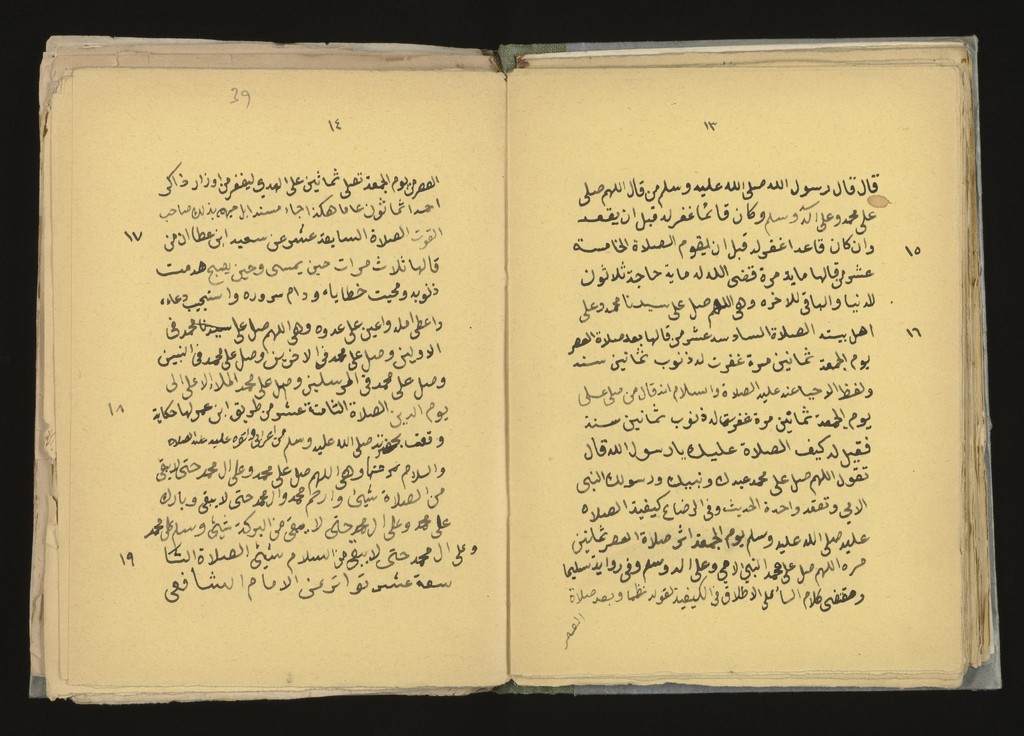 ١٣
قال قال رسول الله صلى الله عليه وسلم من قال اللهم صلى
على محمد وعلى اله وسلم وكان قائما غفر له قبل ان يقعد
وان كان قاعدا غفر له قبل ان يقوم الصلاة الخامسة
١٥
عشر من قالها ماية مرة قضى الله له ماية حاجة ثلاثون
للدنيا والباقي للاخره وهي اللهم صل على سيدنا محمد وعلى
اهل بيته الصلاة السادسه عشر من قالها بعد صلاة العصر
١٦
يوم الجمعة ثمانين مرة غفرت له ذنوب ثمانين سنة
ولفظ الاحيا عنه عليه الصلاة والسلام انه قال من صلى علي
يوم الجمعة ثمانين مرة غفر الله له ذنوب ثمانين سنة
فقيل له كيف الصلاة عليك يا رسول الله قال
تقول اللهم صل على محمد عبدك ونبيك ورسولك النبي
الامي وتعقد واحدة الحديث وفي الرضاع كيفية الصلاه
عليه صلى الله عليه وسلم يوم الجمعة اثر صلاة العصر ثمانين
مره اللهم صل على محمد النبي الامي وعلى اله وسلم وفي رواية تسليما
ومقتضى كلام على الاطلاق في الكيفية لقوله نظما وبعد صلاة
العصر
39
١٤
العصر من يوم الجمعة تصلى ثمانين على الهدي ليغفر من اوزار ذاكر
احمدا ثمانون عاما هكذا جاء مسندا بذلك صاحب
القوت الصلاة السابعة عشر عن سعيد ابن عطا ان من
١٧
قالها ثلاث مرات حين يمسى وحين يصبح هدمت
ذنوبه ومحيت خطاياه ودام سروره واستجيب دعاه
واعطى امله واعين على عدوه وهي اللهم صل على سيدنا محمد في
الاولين وصل على محمد في الاخرين وصل على محمد في النبيين
وصل على محمد في المرسلين وصل على محمد الملاء الاعلى الى
يوم الدين الصلاة الثامنة عشر من طريق ابن عمر لها حكاية
١٨
وقعت بحضرته صلى الله عليه وسلم من اعرابي عليه الصلاه
والسلام وهي اللهم صل على محمد وعلى ال محمد حتى لا يبقى
من الصلاة شيئ وارحم محمد وال محمد حتى لا يبقى وبارك
على محمد وعلى ال محمد حتى لا يبقى من البركة شيئ وسلم على محمد
وعلى ال محمد حتى لا يبقى من السلام شيئ الصلاة التا
١٩
سعة عشر تواتر عن الامام الشافعي